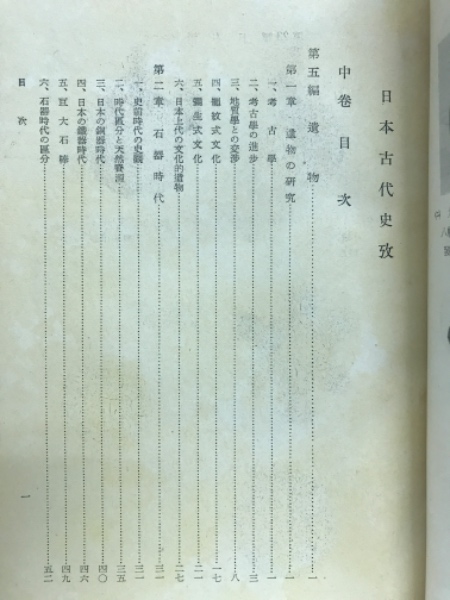 日本古代史攷
中卷目次
第五編 遺物………一
第一章 遺物の研究………一
一、考古學………一
二、考古學の進步………三
三、地質學との交渉………八
四、繩紋式文化………一七
五、彌生式文化………二一
六、日本上代の文化的遺物………二七
第二章 石器時代………三一
一、史前時代の史觀………三一
二、時代區分と天然資源………三五
三、日本の銅器時代………四〇
四、日本の鐵器時代………四六
五、巨大石時………四九
六、石器時代の區分………五二
目次
一